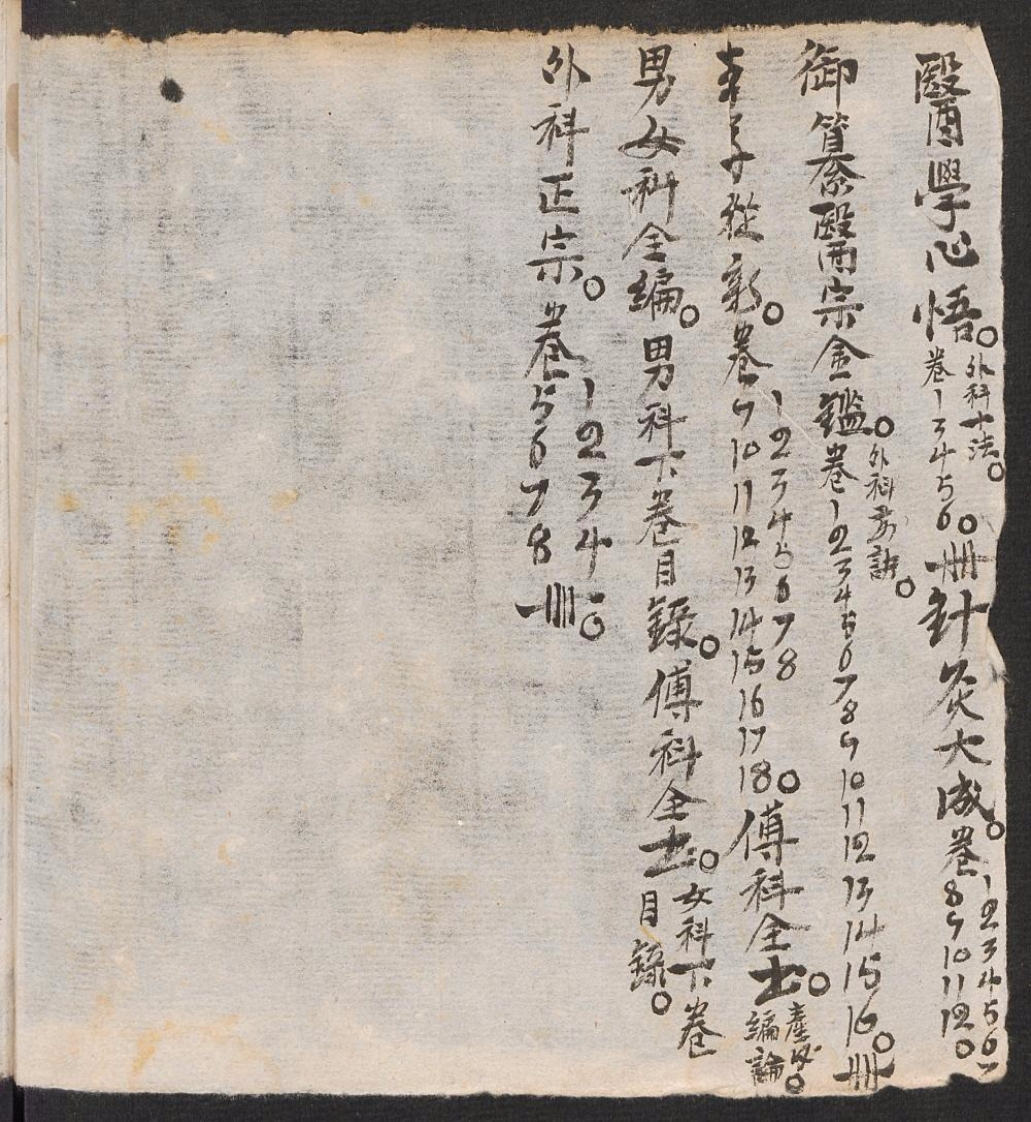 醫學心悟。外科十法。卷1 3 4 5 6。冊針灸大成。卷1 2 3 4 5 6 7 8 9 10 11 12。
御纂醫宗金鑑。外科要訣。卷1 2 3 4 5 6 7 8 9 10 11 12 13 14 15 16。冊
本草從新。卷1 2 3 4 5 6 7 8 9 10 11 12 13 14 15 16 17 18。傅科全书。產後。編論
男女科全編。男科下卷目錄。傅科全书。女科下卷目錄。
外科正宗。卷1 2 3 4 5 6 7 8。冊